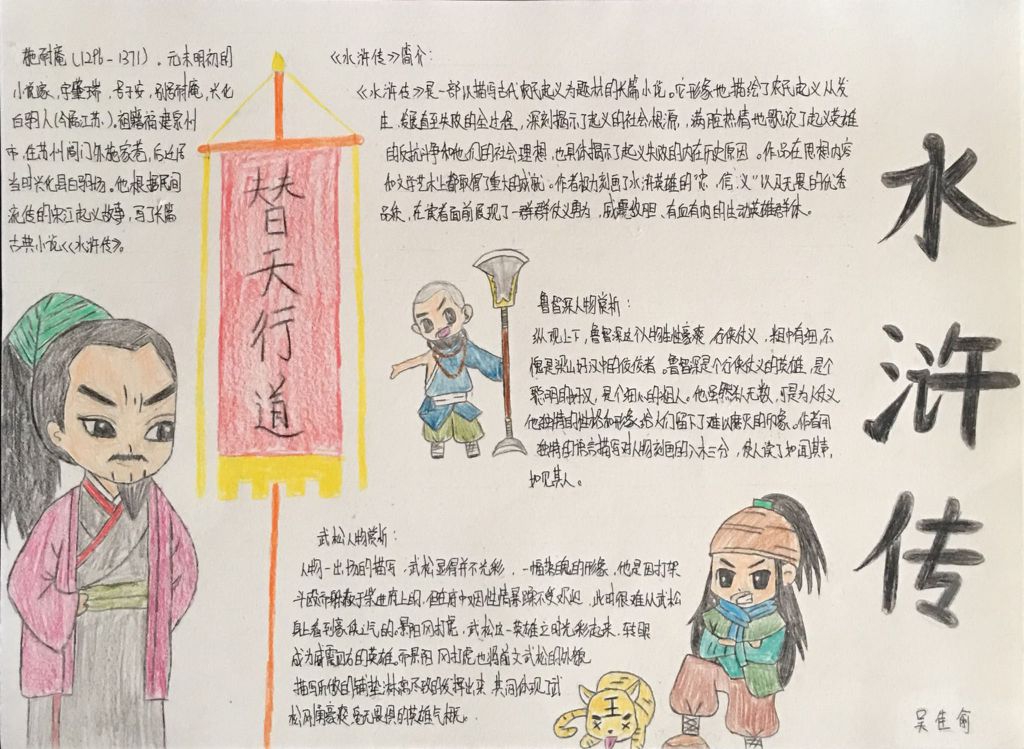 施耐庵(1296-1371)。元末明初的
小说家，字肇瑞，号子安，别号耐庵，兴化
白驹人(今属江苏)。祖籍福建泉州
市，在苏州阊门外施家巷，后迁居
当时兴化县白驹场。他根据民间
流传的宋江起义故事，写了长篇
古典小说《水浒传》。
替天行道
《水浒传》简介：
《水浒传》是一部以描写古代农民起义为题材的长篇小说。它形象地描绘了农民起义从发
生、发展直至失败的全过程，深刻揭示了起义的社会根源，满腔热情地歌颂了起义英雄
的反抗斗争和他们的社会理想，也具体揭示了起义失败的内在历史原因。作品在思想内容
和文学艺术上都取得了重大的成就。作者极力刻画了水浒英雄的“忠、信、义”以及无畏的优秀
品质，在读者面前展现了一群群仗义勇为、威震敌胆、有血有肉的生动英雄群体。
水浒传
鲁智深人物赏析：
纵观上下，鲁智深这个人物性格豪爽、行侠仗义，粗中有细，不
愧是梁山好汉中的佼佼者。鲁智深是个行侠仗义的英雄，是个
聪明的好汉，是个细心的粗人。他虽然杀人无数，可是为人仗义
他独特的性格和形象给人们留下了难以磨灭的印象。作者用
独特的语言描写对人物刻画的入木三分，使人读了如闻其事，
如见其人。
武松人物赏析：
人物一出场的描写，武松显得并不光彩，一幅落魄的形象，他是因打架
斗殴而躲于柴进府上的，但在府中因性情暴躁不受欢迎，此时很难从武松
身上看到豪侠之气的。景阳冈打虎，武松这一英雄立时光彩起来，转眼
成为威震四方的英雄。而景阳冈打虎也将前文武松的外貌
描写所做的铺垫淋漓尽致的发挥出来，共同体现了武
松刚猛豪爽毫无畏惧的英雄气概。
吴佳俞